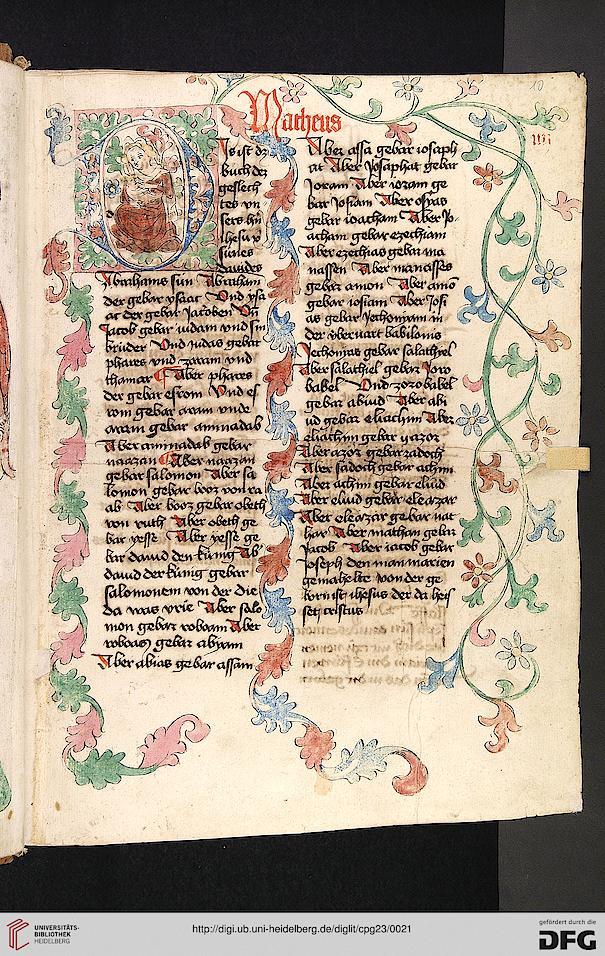 Matheus
10
Is ist dz
buch der
geslech
tes vn
sers hn
ihesu x
sunes
dauides
Abrahams sun Abraham
der gebar ysaac Vnd ysa
ac der gebar Jacoben Vn
Jacob gebar iudam vnd sin
brüder Vnd iudas gebar
phares vnd zaram vnd
thamar Aber phares
der gebar esrom Vnd es
rom gebar aram vnde
aram gebar aminadab
Aber aminadab gebar
naazan Aber naazan
gebar salomon Aber sa
lomon gebar booz von ra
ab Aber booz gebar obeth
von ruth Aber obeth ge
bar yesse Aber yesse ge
bar dauid den künig Ab
dauid der künig gebar
salomonem von der die
da was vrie Aber salo
mon gebar roboam Aber
roboam gebar abyam
Aber abias gebar assam
Aber assa gebar iosaph
at Aber Josaphat gebar
Joram Aber ioram ge
bar Josiam Aber osyas
gebar ioatham Aber Jo
atham gebar ezechiam
Aber ezechias gebar ma
nassen Aber manasses
gebar amon Aber amō
gebar iosiam Aber Josi
as gebar Jechoniam in
der übervart babilonis
Jechonias gebar salathyel
Aber salathyel gebar zoro
babel Vnd zorobabel
gebar abiud Aber abi
ud gebar eliachim Aber
eliachim gebar yazor
Aber azor gebar zadoch
Aber sadoch gebar achim
Aber achim gebar eliud
Aber eliud gebar eleazar
Aber eleazar gebar mat
han Aber mathan gebar
Jacob Aber iacob gebar
Joseph den man marien
gemahelte von der ge
born ist ihesus der da heis
set cristus
UNIVERSITÄTS-
BIBLIOTHEK
HEIDELBERG
http://digi.ub.uni-heidelberg.de/diglit/cpg23/0021
gefördert durch die
DFG